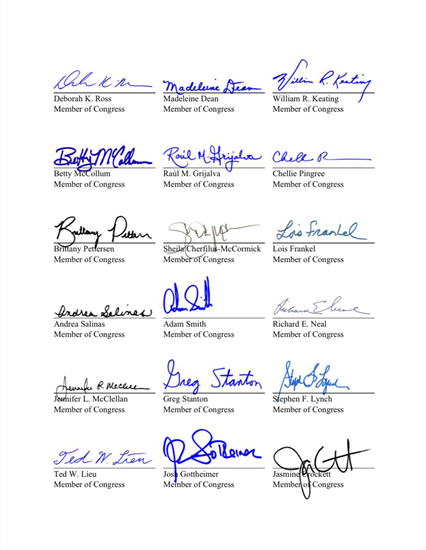 Madeleine Dean
William R. Keating
Deborah K. Ross
Madeleine Dean
William R. Keating
Member of Congress
Member of Congress
Member of Congress
Betty McCollum
Raúl M. Grijalva
Betty McCollum
Raúl M. Grijalva
Chellie Pingree
Member of Congress
Member of Congress
Member of Congress
Brittany
Lois Frankel
Brittany Pettersen
Sheila Cherfilus-McCormick
Lois Frankel
Member of Congress
Member of Congress
Member of Congress
Andrea Salinas
Adam Smith
Andrea Salinas
Adam Smith
Richard E. Neal
Member of Congress
Member of Congress
Member of Congress
Jennifer R. McClellan
Greg Stanton
Jennifer L. McClellan
Greg Stanton
Stephen F. Lynch
Member of Congress
Member of Congress
Member of Congress
Ted W. Lieu
Gottheimer
Ted W. Lieu
Josh Gottheimer
Jasmine Crockett
Member of Congress
Member of Congress
Member of Congress